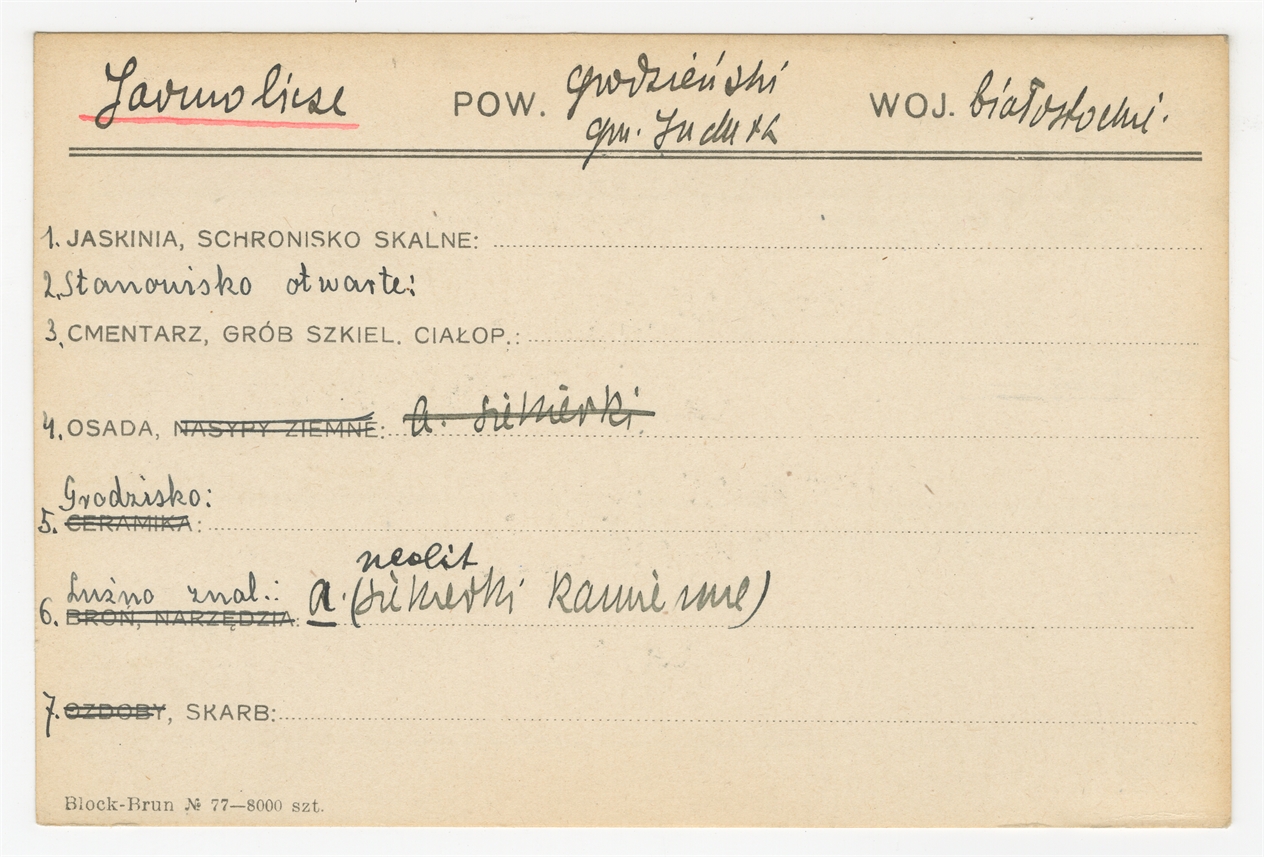 Jarmolicze POW. grodzieński WOJ. białostocki.
gm. Indura
1. JASKINIA, SCHRONISKO SKALNE:
2. Stanowisko otwarte:
3. CMENTARZ, GRÓB SZKIEL. CIAŁOP.:
4. OSADA, NASYPY ZIEMNE: a. siekierki
Grodzisko:
5. CERAMIKA:
neolit
Luźno znal.: a. (siekierki kamienne)
6. BROŃ, NARZĘDZIA:
7. OZDOBY, SKARB:
Block-Brun № 77—8000 szt.